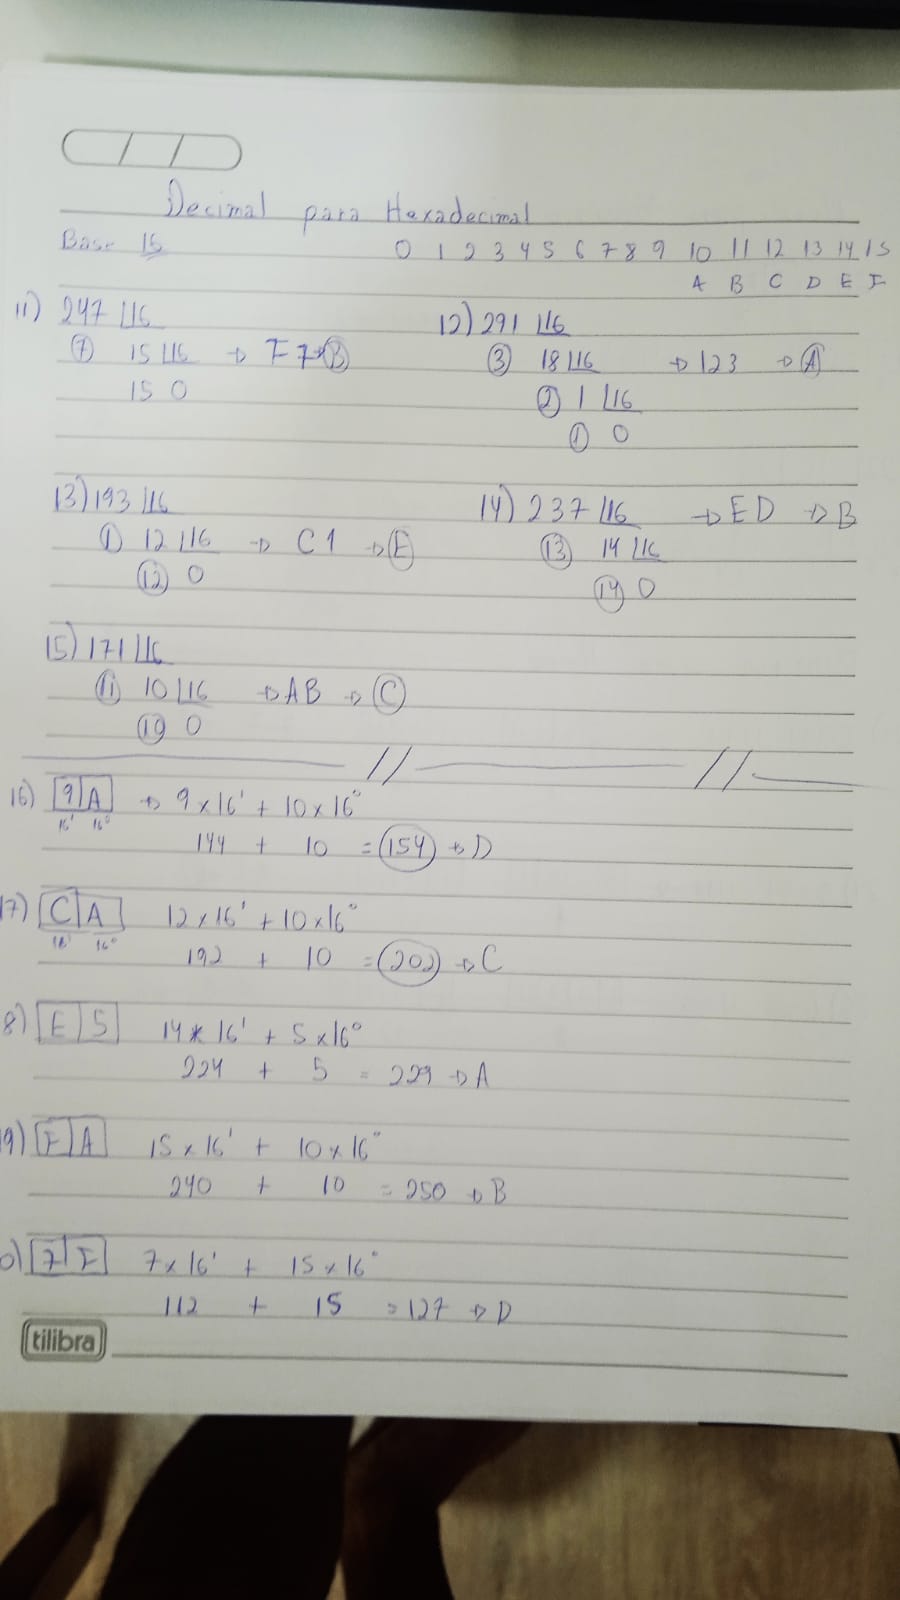 Decimal para Hexadecimal
Base 15 0 1 2 3 4 5 6 7 8 9 10 11 12 13 14 15
A B C D E F
11) 247 16 12) 291 16
7 15 16 → F7 → B 3 18 16 → 123 → A
15 0 2 1 16
1 0
13) 193 16 14) 237 16 → ED → B
1 12 16 → C1 → E 13 14 16
12 0 14 0
15) 171 16
11 10 16 → AB → C
10 0
16) 9 A → 9 x 16¹ + 10 x 16⁰
16¹ 16⁰
144 + 10 = 154 → D
17) C A 12 x 16¹ + 10 x 16⁰
16¹ 16⁰
192 + 10 = 202 → C
8) E 5 14 x 16¹ + 5 x 16⁰
224 + 5 = 229 → A
19) F A 15 x 16¹ + 10 x 16⁰
240 + 10 = 250 → B
0) 7 F 7 x 16¹ + 15 x 16⁰
112 + 15 = 127 → D
tilibra